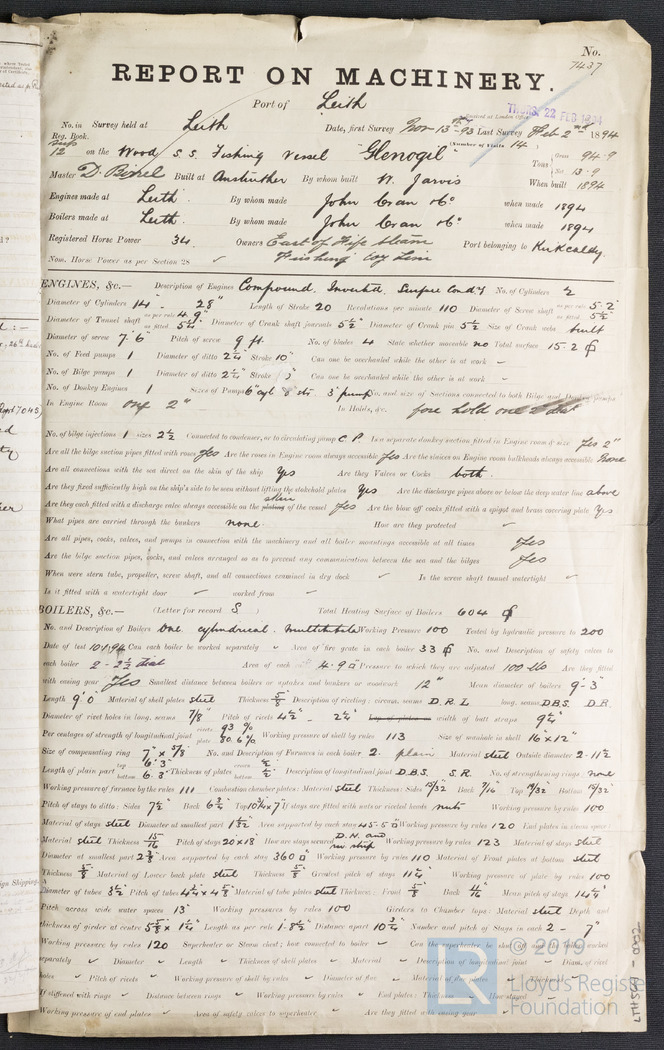 No.
7437
REPORT ON MACHINERY.
Port of Leith
THURS. 22 FEB 1894
Received at London Office
No. in Survey held at Leith Date, first Survey Nov 13th 93 Last Survey Feb 2nd 1894
Reg. Book. (Number of Visits 14)
12 on the Wood S.S. Fishing Vessel "Glenogil" Tons Gross 94.9
Net 13.9
Master D. Built at Anstruther By whom built W. Jarvis When built 1894
Engines made at Leith By whom made John Cran & Co when made 1894
Boilers made at Leith By whom made John Cran & Co when made 1894
Registered Horse Power 34 Owners East of Fife Steam Port belonging to Kirkcaldy
Nom. Horse Power as per Section 28 Fishing Coy Lim
ENGINES, &c.— Description of Engines Compound. Inverted. Surface Condg No. of Cylinders 2
Diameter of Cylinders 14" - 28" Length of Stroke 20 Revolutions per minute 110 Diameter of Screw shaft as per rule 5.2" as fitted 5½"
Diameter of Tunnel shaft as per rule 4.9" as fitted 5¼" Diameter of Crank shaft journals 5½" Diameter of Crank pin 5½ Size of Crank webs built
Diameter of screw 7'.6" Pitch of screw 9 ft. No. of blades 4 State whether moveable no Total surface 15.2
No. of Feed pumps 1 Diameter of ditto 2¼" Stroke 10" Can one be overhauled while the other is at work –
No. of Bilge pumps 1 Diameter of ditto 2¼" Stroke Can one be overhauled while the other is at work –
No. of Donkey Engines 1 Sizes of Pumps 6" cyl 3" pump No. and size of Suctions connected to both Bilge and Donkey pumps
In Engine Room one 2" In Holds, &c. fore hold one 2"
No. of bilge injections 1 sizes 2½ Connected to condenser, or to circulating pump C.P. Is a separate donkey suction fitted in Engine room & size Yes 2"
Are all the bilge suction pipes fitted with roses Yes Are the roses in Engine room always accessible Yes Are the sluices on Engine room bulkheads always accessible None
Are all connections with the sea direct on the skin of the ship Yes Are they Valves or Cocks both.
Are they fixed sufficiently high on the ship's side to be seen without lifting the stokehold plates Yes Are the discharge pipes above or below the deep water line above
Are they each fitted with a discharge valve always accessible on the plating skin of the vessel Yes Are the blow off cocks fitted with a spigot and brass covering plate Yes
What pipes are carried through the bunkers none. How are they protected –
Are all pipes, cocks, valves, and pumps in connection with the machinery and all boiler mountings accessible at all times Yes
Are the bilge suction pipes, cocks, and valves arranged so as to prevent any communication between the sea and the bilges Yes
When were stern tube, propeller, screw shaft, and all connections examined in dry dock – Is the screw shaft tunnel watertight –
Is it fitted with a watertight door – worked from –
BOILERS, &c.— (Letter for record S.) Total Heating Surface of Boilers 604
No. and Description of Boilers One. cylindrical. Multitubular Working Pressure 100 Tested by hydraulic pressure to 200
Date of test 10.1.94 Can each boiler be worked separately – Area of fire grate in each boiler 33 No. and Description of safety valves to
each boiler 2 - 2½ Area of each valve 4.9 Pressure to which they are adjusted 100 lbs Are they fitted
with easing gear Yes Smallest distance between boilers or uptakes and bunkers or woodwork 12" Mean diameter of boilers 9'.3"
Length 9'.0" Material of shell plates steel Thickness ⅝ Description of riveting: circum. seams D.R.L long. seams D.B.S. D.R
Diameter of rivet holes in long. seams 7/8" Pitch of rivets 4½" - 2¼" Lap of plates or width of butt straps 9¼"
Per centages of strength of longitudinal joint rivets 93% plate 80.6% Working pressure of shell by rules 113 Size of manhole in shell 16"×12"
Size of compensating ring 7"×5/8 No. and Description of Furnaces in each boiler 2. plain Material steel Outside diameter 2-11½
Length of plain part top 6'.3" bottom 6.3 Thickness of plates crown ½ bottom ½ Description of longitudinal joint D.B.S. S.R. No. of strengthening rings none
Working pressure of furnace by the rules 111 Combustion chamber plates: Material steel Thickness: Sides Back 7/16" Top Bottom
Pitch of stays to ditto: Sides 7½" Back 6¾" Top If stays are fitted with nuts or riveted heads nuts Working pressure by rules 100
Material of stays steel Diameter at smallest part Area supported by each stay Working pressure by rules 120 End plates in steam space:
Material steel Thickness 15/16 Pitch of stays 20×18" How are stays secured D.N. and Working pressure by rules 123 Material of stays steel
Diameter at smallest part Area supported by each stay 360 Working pressure by rules 110 Material of Front plates at bottom steel
Thickness ⅝ Material of Lower back plate steel Thickness ⅝ Greatest pitch of stays 11¼" Working pressure of plate by rules 100
Diameter of tubes 3½" Pitch of tubes Material of tube plates steel Thickness: Front ⅝ Back 11/16 Mean pitch of stays
Pitch across wide water spaces 13" Working pressures by rules 100 Girders to Chamber tops: Material steel Depth and
thickness of girder at centre Length as per rule 1-8½" Distance apart 10¾" Number and pitch of Stays in each 2 - 7"
Working pressure by rules 120 Superheater or Steam chest; how connected to boiler – Can the superheater be shut off and the boiler worked
separately – Diameter – Length – Thickness of shell plates – Material – Description of longitudinal joint – Diam. of rivet
holes – Pitch of rivets – Working pressure of shell by rules – Diameter of flue – Material of flue plates – Thickness
If stiffened with rings – Distance between rings – Working pressure by rules – End plates: Thickness – How stayed –
Working pressure of end plates – Area of safety valves to superheater – Are they fitted with easing gear –
© 2019
Lloyd's Register
Foundation